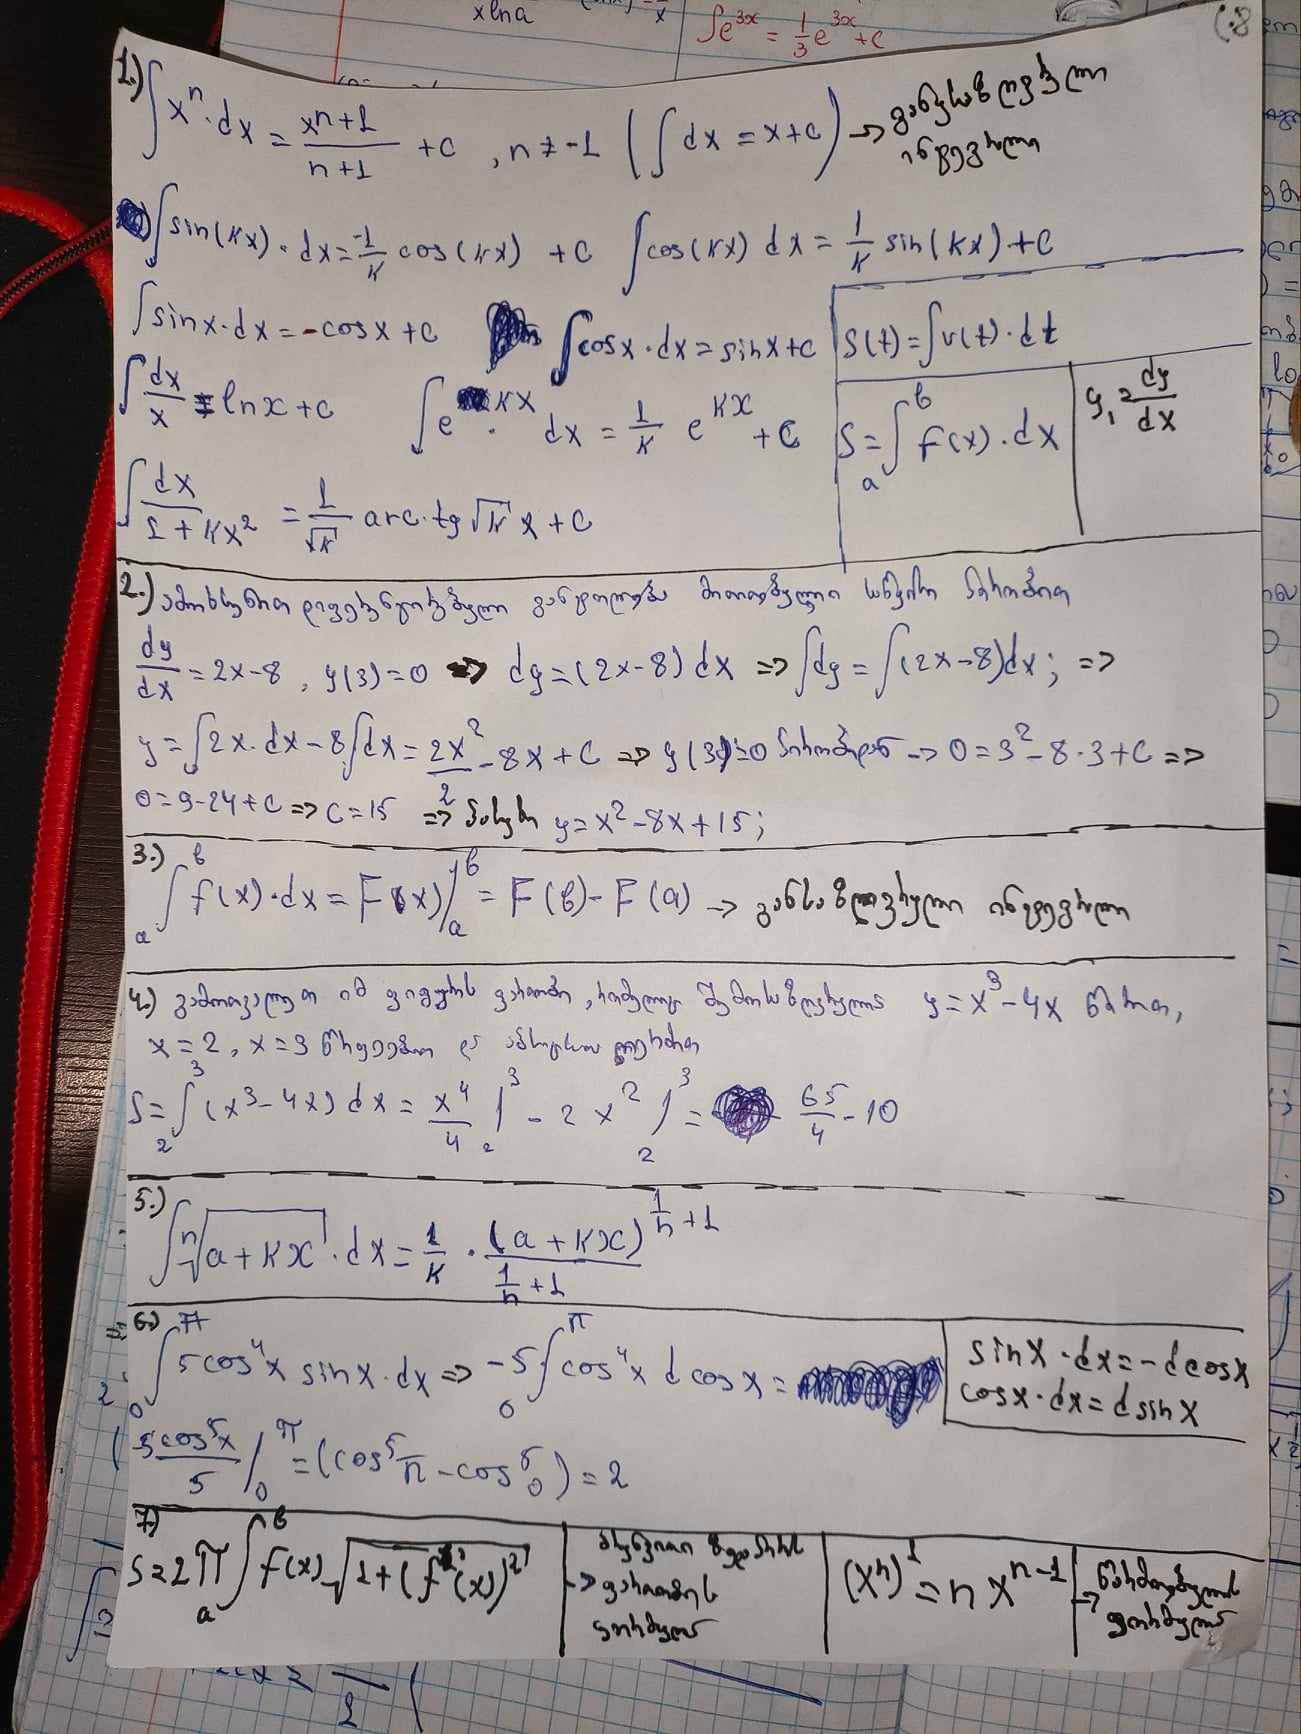 xlna
∫e^3x = 1/3 e^3x + c
1.) ∫x^n · dx = x^(n+1)/(n+1) + c , n ≠ -1 (∫dx = x+c) → განუსაზღვრელი ინტეგრალი
∫sin(kx) · dx = -1/k cos(kx) + c ∫cos(kx) dx = 1/k sin(kx) + c
∫sinx · dx = -cosx + c ∫cosx · dx = sinx + c
S(t) = ∫v(t) · dt
∫dx/x = lnx + c ∫e^kx · dx = 1/k e^kx + c
S = ∫_a^b f(x) · dx
y' = dy/dx
∫dx/(1+kx²) = 1/√k arc·tg √k x + c
2.) ამოხსენით დიფერენციალური განტოლება მითითებული საწყისი პირობით
dy/dx = 2x-8 , y(3)=0 => dy=(2x-8) dx => ∫dy = ∫(2x-8)dx; =>
y = ∫2x·dx - 8∫dx = 2x²/2 - 8x + c => y(3)=0 პირობიდან → 0 = 3² - 8·3 + c =>
0 = 9-24+c => c=15 => პასუხი y = x²-8x+15;
3.) ∫_a^b f(x)·dx = F(x)/_a^b = F(b) - F(a) → განსაზღვრული ინტეგრალი
4.) გამოთვალეთ იმ ფიგურის ფართობი, რომელიც შემოსაზღვრულია y = x³-4x წირით,
x=2, x=3 წრფეებით და აბსცისთა ღერძით
S = ∫_2^3 (x³-4x) dx = x⁴/4 /_2^3 - 2x² /_2^3 = 65/4 - 10
5.) ∫ⁿ√(a+kx) · dx = 1/k · (a+kx)^(1/n+1)/(1/n+1)
6.) ∫_0^π 5cos⁴x sinx·dx => -5∫_0^π cos⁴x dcosx =
sinx·dx = -dcosx
cosx·dx = dsinx
5cos⁵x/5 /_0^π = (cos⁵π - cos⁵0) = 2
7.) S = 2π ∫_a^b f(x) √(1+(f'(x))²) → ზედაპირის ფართობის ფორმულა
(xⁿ)' = n x^(n-1) → წარმოებულის ფორმულა